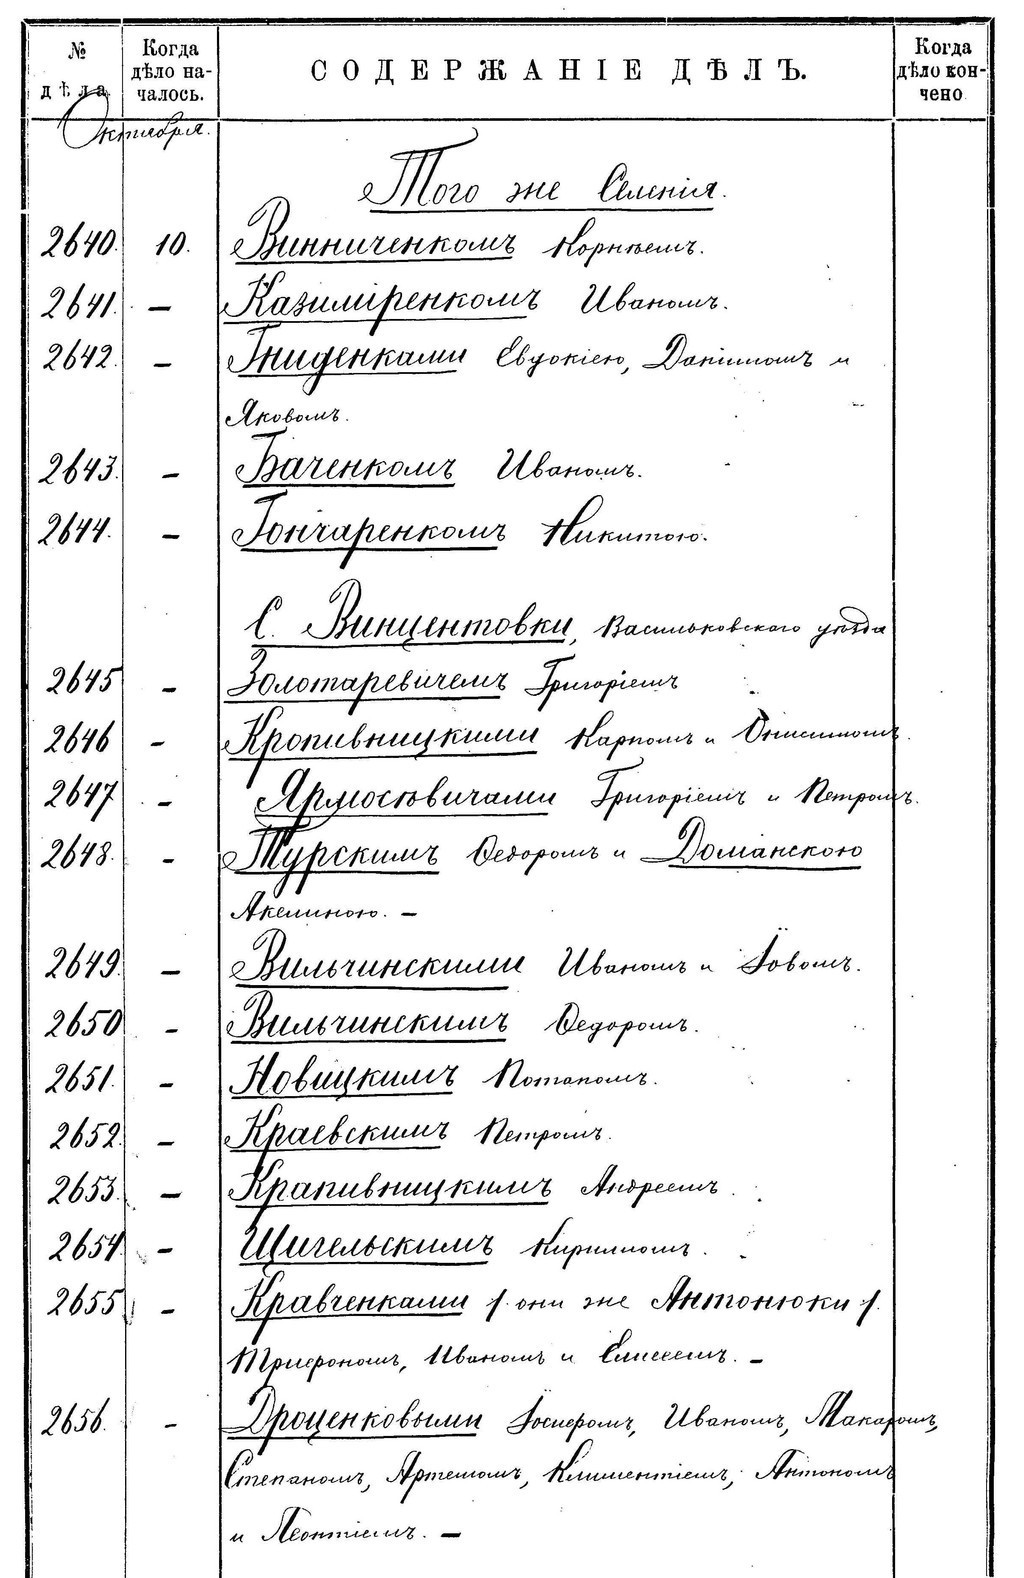 № дѣла
Когда дѣло на-чалось.
СОДЕРЖАНІЕ ДѢЛЪ.
Когда дѣло кон-чено
Октября.
Того же Селенія.
2640. 10. Винниченкомъ Корнѣемъ.
2641. — Казиміренкомъ Иваномъ.
2642. — Гниденками Евдокіею, Даніиломъ и
Яковомъ.
2643. — Баченкомъ Иваномъ.
2644. — Гончаренкомъ Никитою.
С. Винцентовки, Васильковскаго уѣзда
2645 — Золотаревичемъ Григоріемъ
2646 — Кропивницкими Карпомъ и Онисимомъ.
2647 — Григоріемъ и Петромъ.
2648. — Турскимъ Ѳедоромъ и Доманскою
Акелиною. —
2649. — Вильчинскими Иваномъ и Іовомъ.
2650 — Вильчинскимъ Ѳедоромъ.
2651. — Новицкимъ Потапомъ.
2652. — Краевскимъ Петромъ.
2653. — Крапивницкимъ Андреемъ.
2654 — Щигельскимъ Кириломъ.
2655 — Кравченками /. они же Антонюки /.
Трифономъ, Иваномъ и Елисеемъ. —
2656. — Дроценковыми Іосифомъ, Иваномъ, Макаромъ,
Степаномъ, Артемомъ, Климентіемъ, Антономъ
и Леонтіемъ. —